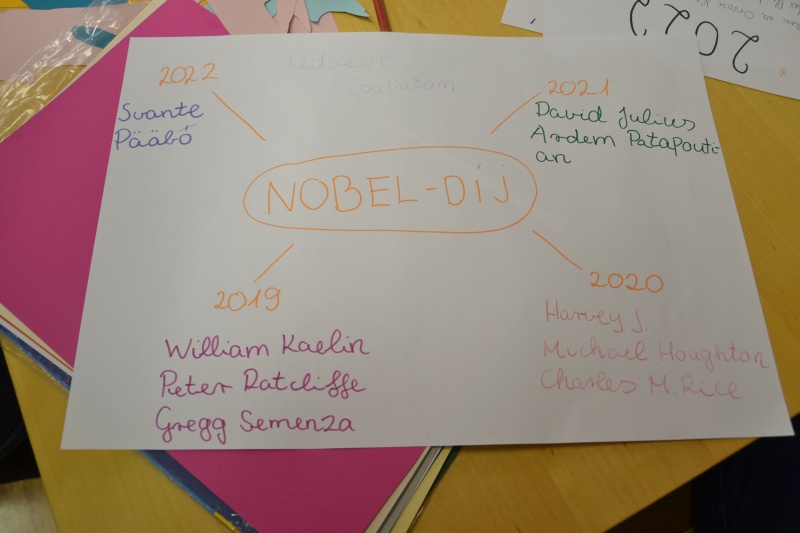 Kedvenc
csapatom
2022
Svante
Pääbó
2021
David Julius
Ardem Patapouti
an
NOBEL-DÍJ
2019
William Kaelin
Peter Ratcliffe
Gregg Semenza
2020
Harvey J.
Michael Houghton
Charles M. Rice
2022